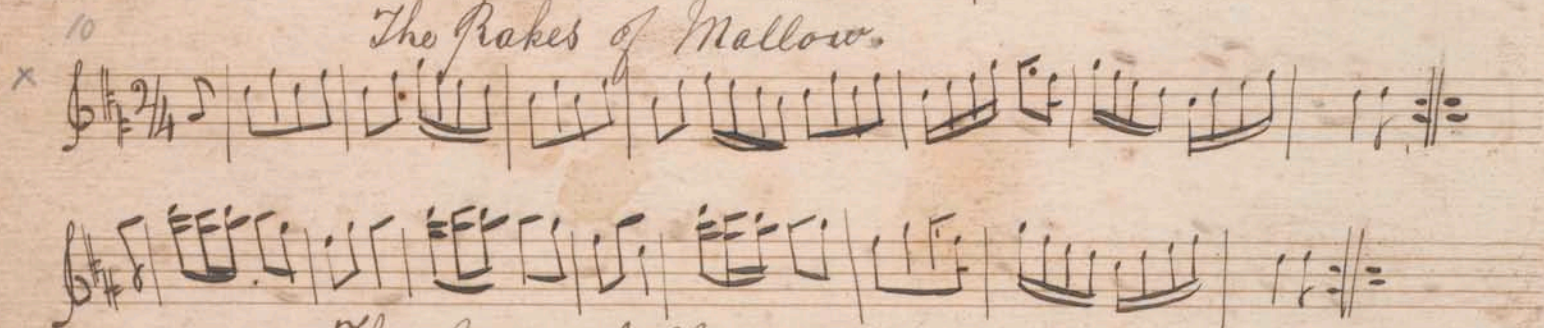 10
The Rakes of Mallow.
x
2/4